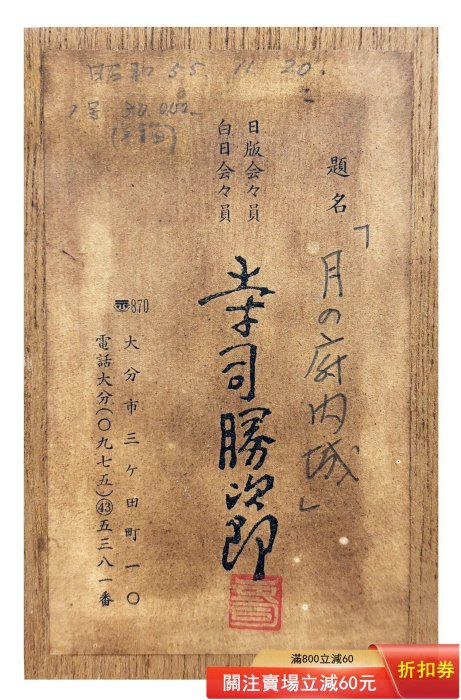 昭和 55. 11. 20.
題名「月の府内城」
日版会々員
白日会々員
幸司勝次郎
〒870
大分市三ケ田町一〇
電話大分(〇九七五)㊸五三八一番
滿800立減60
關注賣場立減60元
折扣券